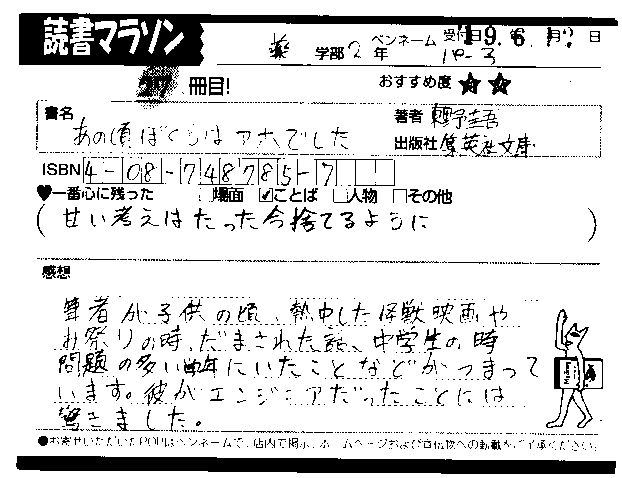 読書マラソン
薬 学部 2 年 ペンネーム 受付日 19.6 月 日
37 冊目! おすすめ度 ★ ★
書名 あの頃ぼくらはアホでした
著者 東野圭吾
出版社 集英社文庫
ISBN 4-08-748785-7
♥一番心に残った □場面 ☑ことば □人物 □その他
(甘い考えはたった今捨てるように)
感想
筆者が子供の頃、熱中した怪獣映画や
お祭りの時、だまされた話、中学生の時
問題の多い学年にいたことなどがつまって
います。彼がエンジニアだったことには
驚きました。
●お寄せいただいたPOPはペンネームで、店内で掲示、ホームページおよび宣伝物への転載をご了承ください。